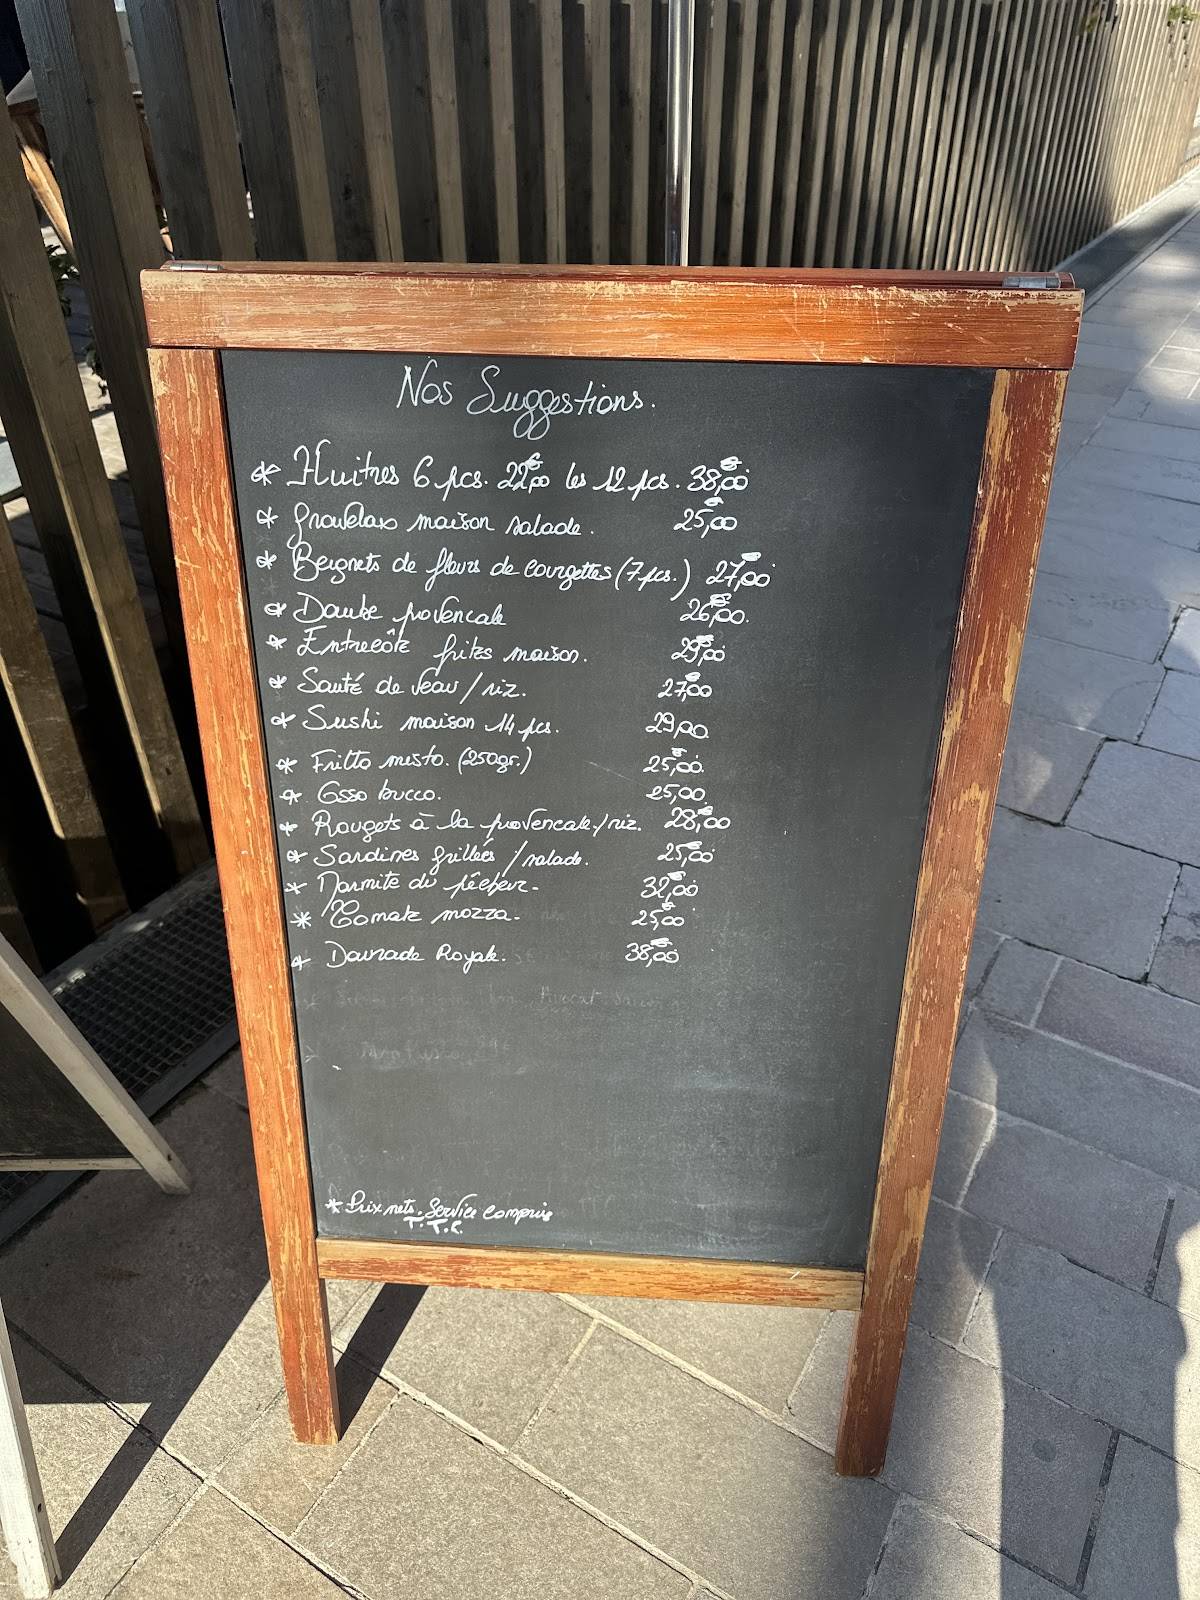 Nos Suggestions.
* Huitres 6 pcs. 22,00€ les 12 pcs. 38,00€
* Gravelax maison salade. 25,00€
* Beignets de fleurs de courgettes (7 pcs.) 27,00€
* Daube provencale 26,00€
* Entrecôte frites maison. 29,00€
* Sauté de veau / riz. 27,00€
* Sushi maison 14 pcs. 29,00
* Fritto misto. (250gr.) 25,00€
* Osso bucco. 25,00
* Rougets à la provencale / riz. 28,00€
* Sardines grillées / salade. 25,00€
* Marmite du pêcheur. 32,00€
* Tomate mozza. 25,00€
* Daurade Royale. 38,00€
* Prix nets. Service compris
T.T.C.